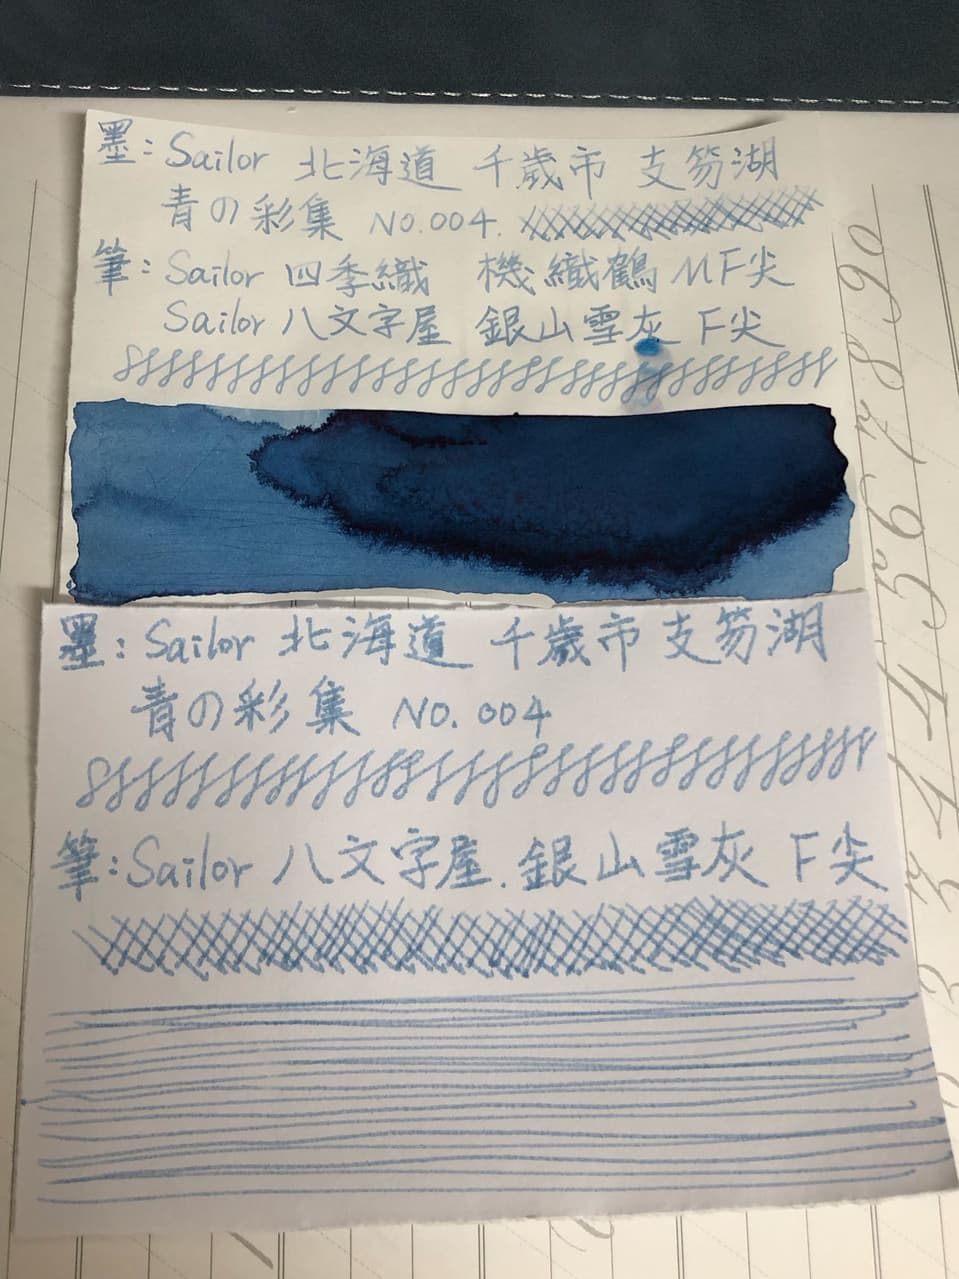 墨：Sailor 北海道 千歳市 支笏湖
青の彩集 NO.004.
筆：Sailor 四季織 機織鶴 MF尖
Sailor 八文字屋 銀山雪灰 F尖
墨：Sailor 北海道 千歳市 支笏湖
青の彩集 NO.004
筆：Sailor 八文字屋.銀山雪灰 F尖